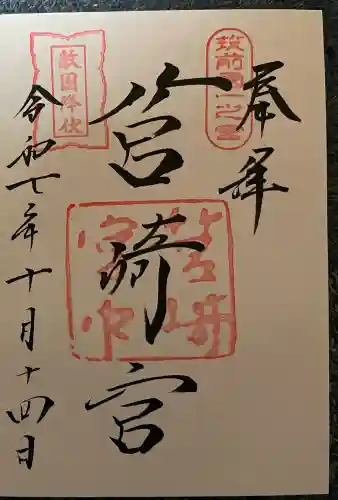 奉拝
筑前國一之宮
筥崎宮
筥崎宮印
敵国降伏
令和七年十月十四日